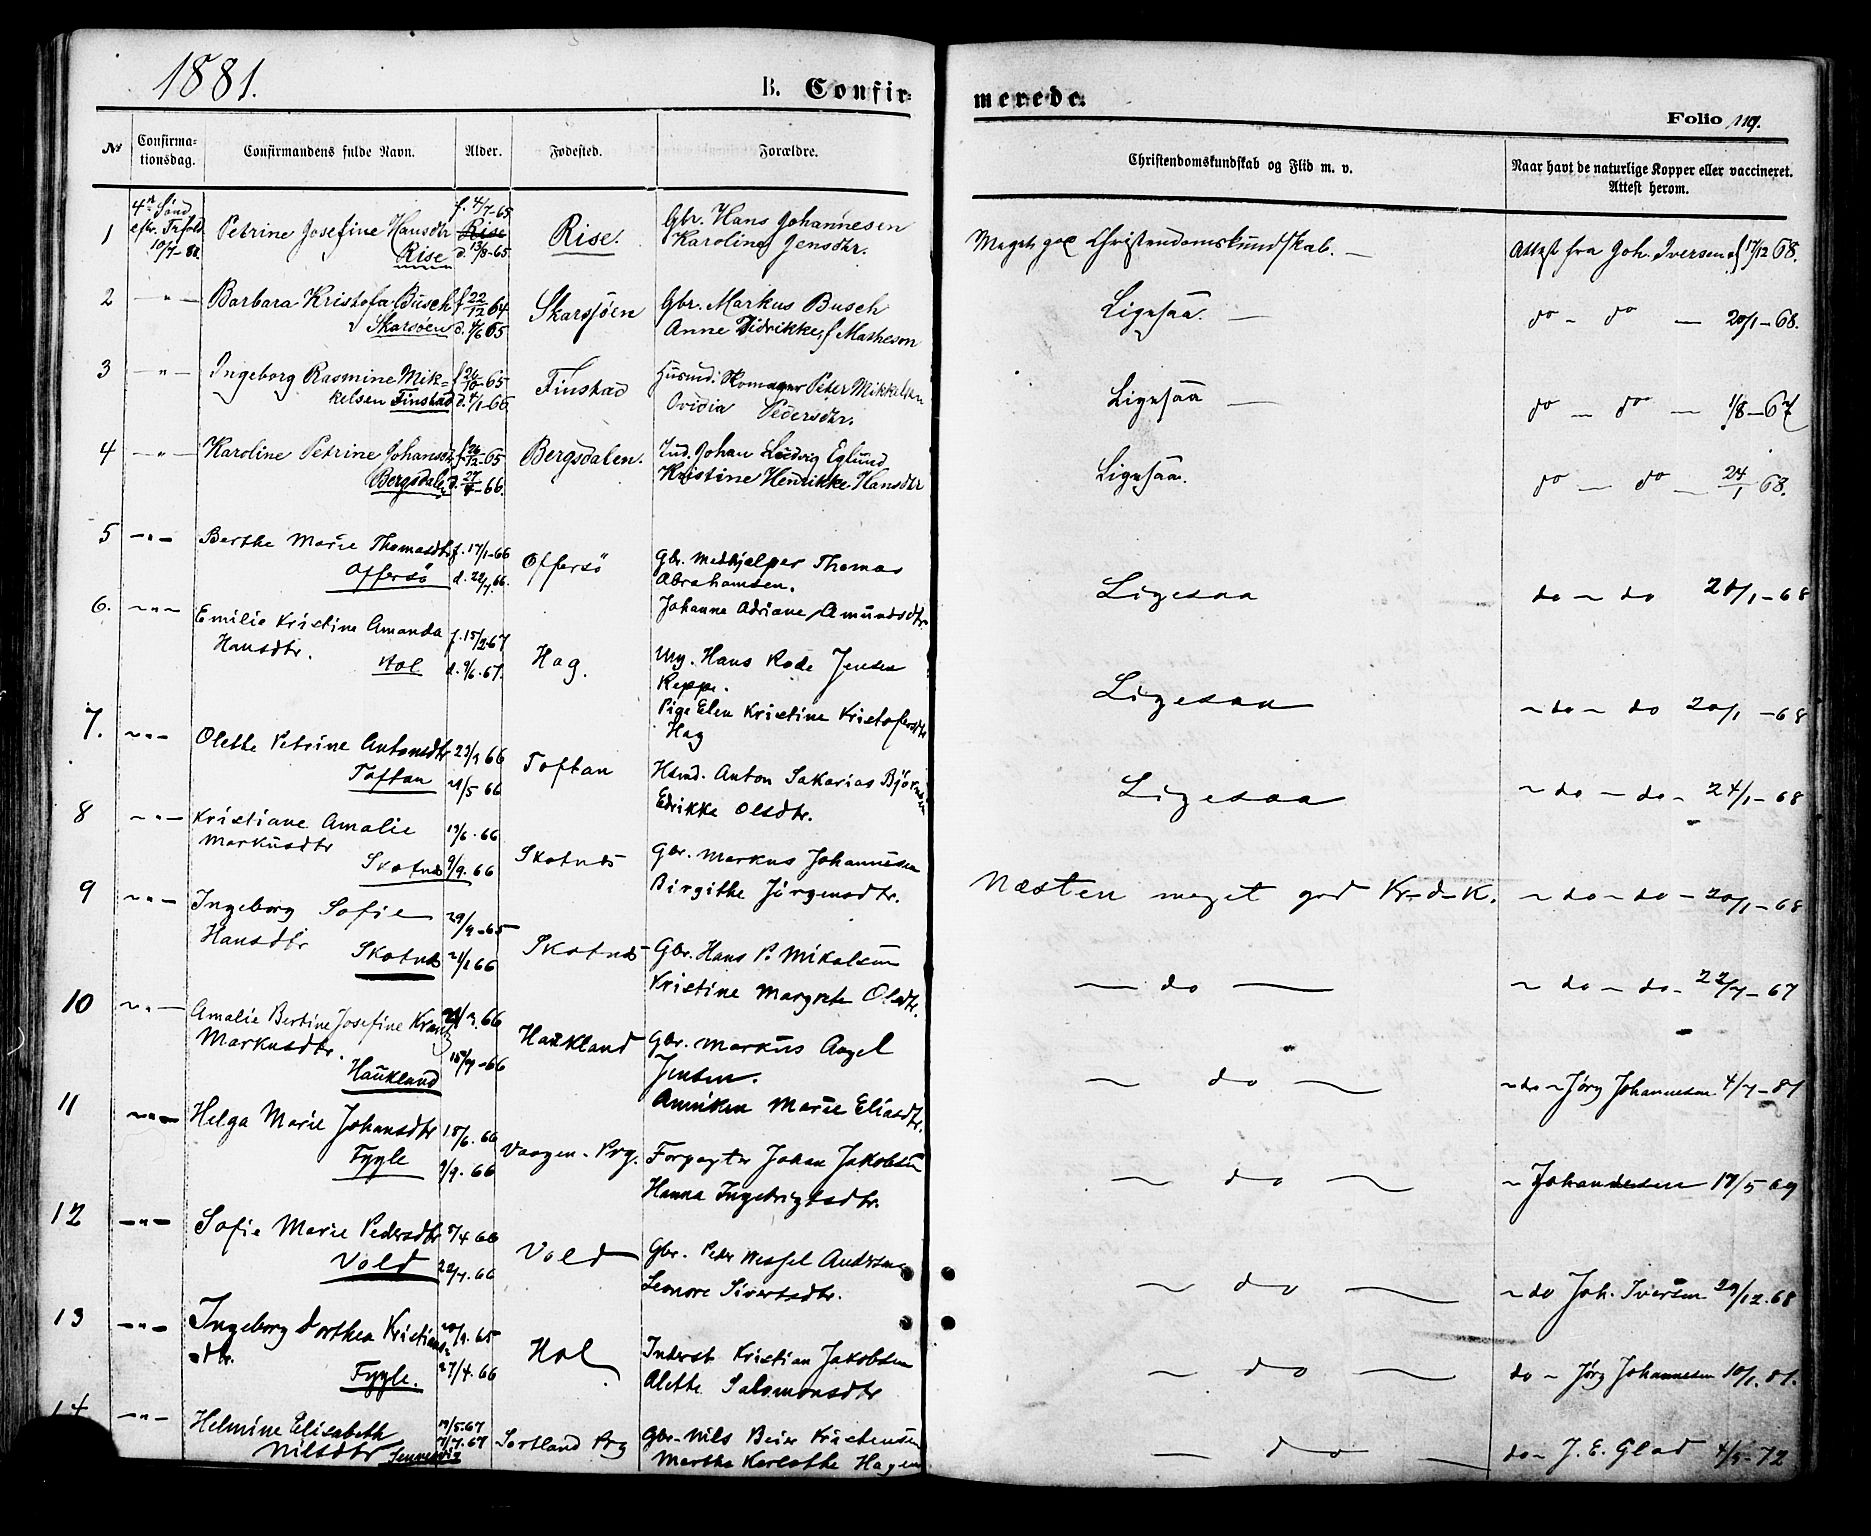 1881.
B. Confir-
merede.
Folio 119.
№ Confirma-
tionsdag. Confirmandens fulde Navn. Alder. Fødested. Forældre. Christendomskundskab og Flid m. v. Naar havt de naturlige Kopper eller vaccineret.
Attest herom.
1 4de Sønd
efter Trefold
10/7-81 Petrine Josefine Hansdtr
Rise f. 4/7-65
Rise
d. 13/8-65 Rise. Gbr. Hans Johannesen
Karoline Jensdtr. Meget god Christendomskundskab. — Attest fra Joh. Iversen af 17/12 68.
2 — " — Barbara Kristofa Busch
Skarsöen f 22/12 64
d. 4/6 65 Skarsjöen Gbr. Markus Busch
Anne Didrikke f Matheson Ligesaa. — do - do — 20/1-68.
3 — " — Ingeborg Rasmine Mik-
kelsen Finstad f 26/10-65
d. 4/1-66 Finstad Husmd. Skomager Peter Mikkelsen
Ovidia Pedersdtr. Ligesaa — do — do — 1/8-67
4 — " — Karoline Petrine Johansdtr
Bergsdalen f 26/12-65
d. -66. Bergsdalen. Ind. Johan Ludvig Eglund
Kristine Henrikke Hansdtr Ligesaa. do — do — 24/1 68.
5 — " — Berthe Marie Thomasdtr
Offersö f. 17/1-66
d. 22/4 66. Offersö Gbr. Medhjelper Thomas
Abrahamsen.
Johanna Adriane Amundsdtr. Ligesaa do ~ do 20/1-68
6. ~ " ~ Emilie Kristine Amanda
Hansdtr.
Hol f. 15/2 67
d. 9/6.67. Hag. Ung. Hans Rode Jensen
Reppe.
Pige Elen Kristine Kristofersdtr
Hag Ligesaa ~ do ~ do 20/1-68
7. ~ " ~ Olette Petrine Antonsdtr
Toftan 23/3 66
21/5 66 Toftan Hsmd. Anton Sakarias Björnsen
Edrikke Olsdtr. Ligesaa ~ do — do - 24/1-68
8 ~ " — Kristiane Amalie
Markusdtr
Skotnes 13/6.66
9/9.66 Skotnes Gbr. Markus Johannesen
Birgithe Jørgensdtr. Næsten meget god Kr-d-K. ~ do ~ do — 20/1-68
9 ~ " ~ Ingeborg Sofie
Hansdtr
Skotnes 29/9-65
21/1 66 Skotnes Gbr. Hans P. Mikalsen
Kristine Margrete Olsdtr. — do — ~ do ~ do - 22/7-67
10 ~ " — Amalie Bertine Josefine Krantz
Markusdtr.
Haukland 21/3.66
15/7-66 Haukland Gbr. Markus Angel
Jensen.
Anniken Marie Eliasdtr. ~ do ~ ~ do ~ Jørg Johannesen 4/7-81
11 ~ " ~ Helga Marie Johansdtr
Fygle 15/6.66
9/9.66 Vaagen. Prg. Forpagter Johan Jakobsen
Hanna Ingebrigtsdtr. ~ do ~ ~ Johannesen 17/5 69
12 — " — Sofie Marie Pedersdtr
Vold 5/4 66
22/7.66 Vold Gbr. Peder Wessel Andersen
Leonore Sivertsdtr. ~ do ~ ~ do Joh. Iversen 29/12.68
13 — " — Ingeborg Dorthea Kristians-
dtr.
Fygle. 20/9.65
27/4.66 Hol Inderst Kristian Jakobsen
Olette Salomonsdtr ~ do ~ do ~ Jørg Johannesen 10/1.81.
14 — " — Helmine Elisabeth
Nilsdtr Sennesvik 19/5.67
7/7.67 Sortland Prg Gbr. Nils Beier Kristensen
Marthe Karlotte Hagen — do — do ~ J. E. Glad 4/5-72